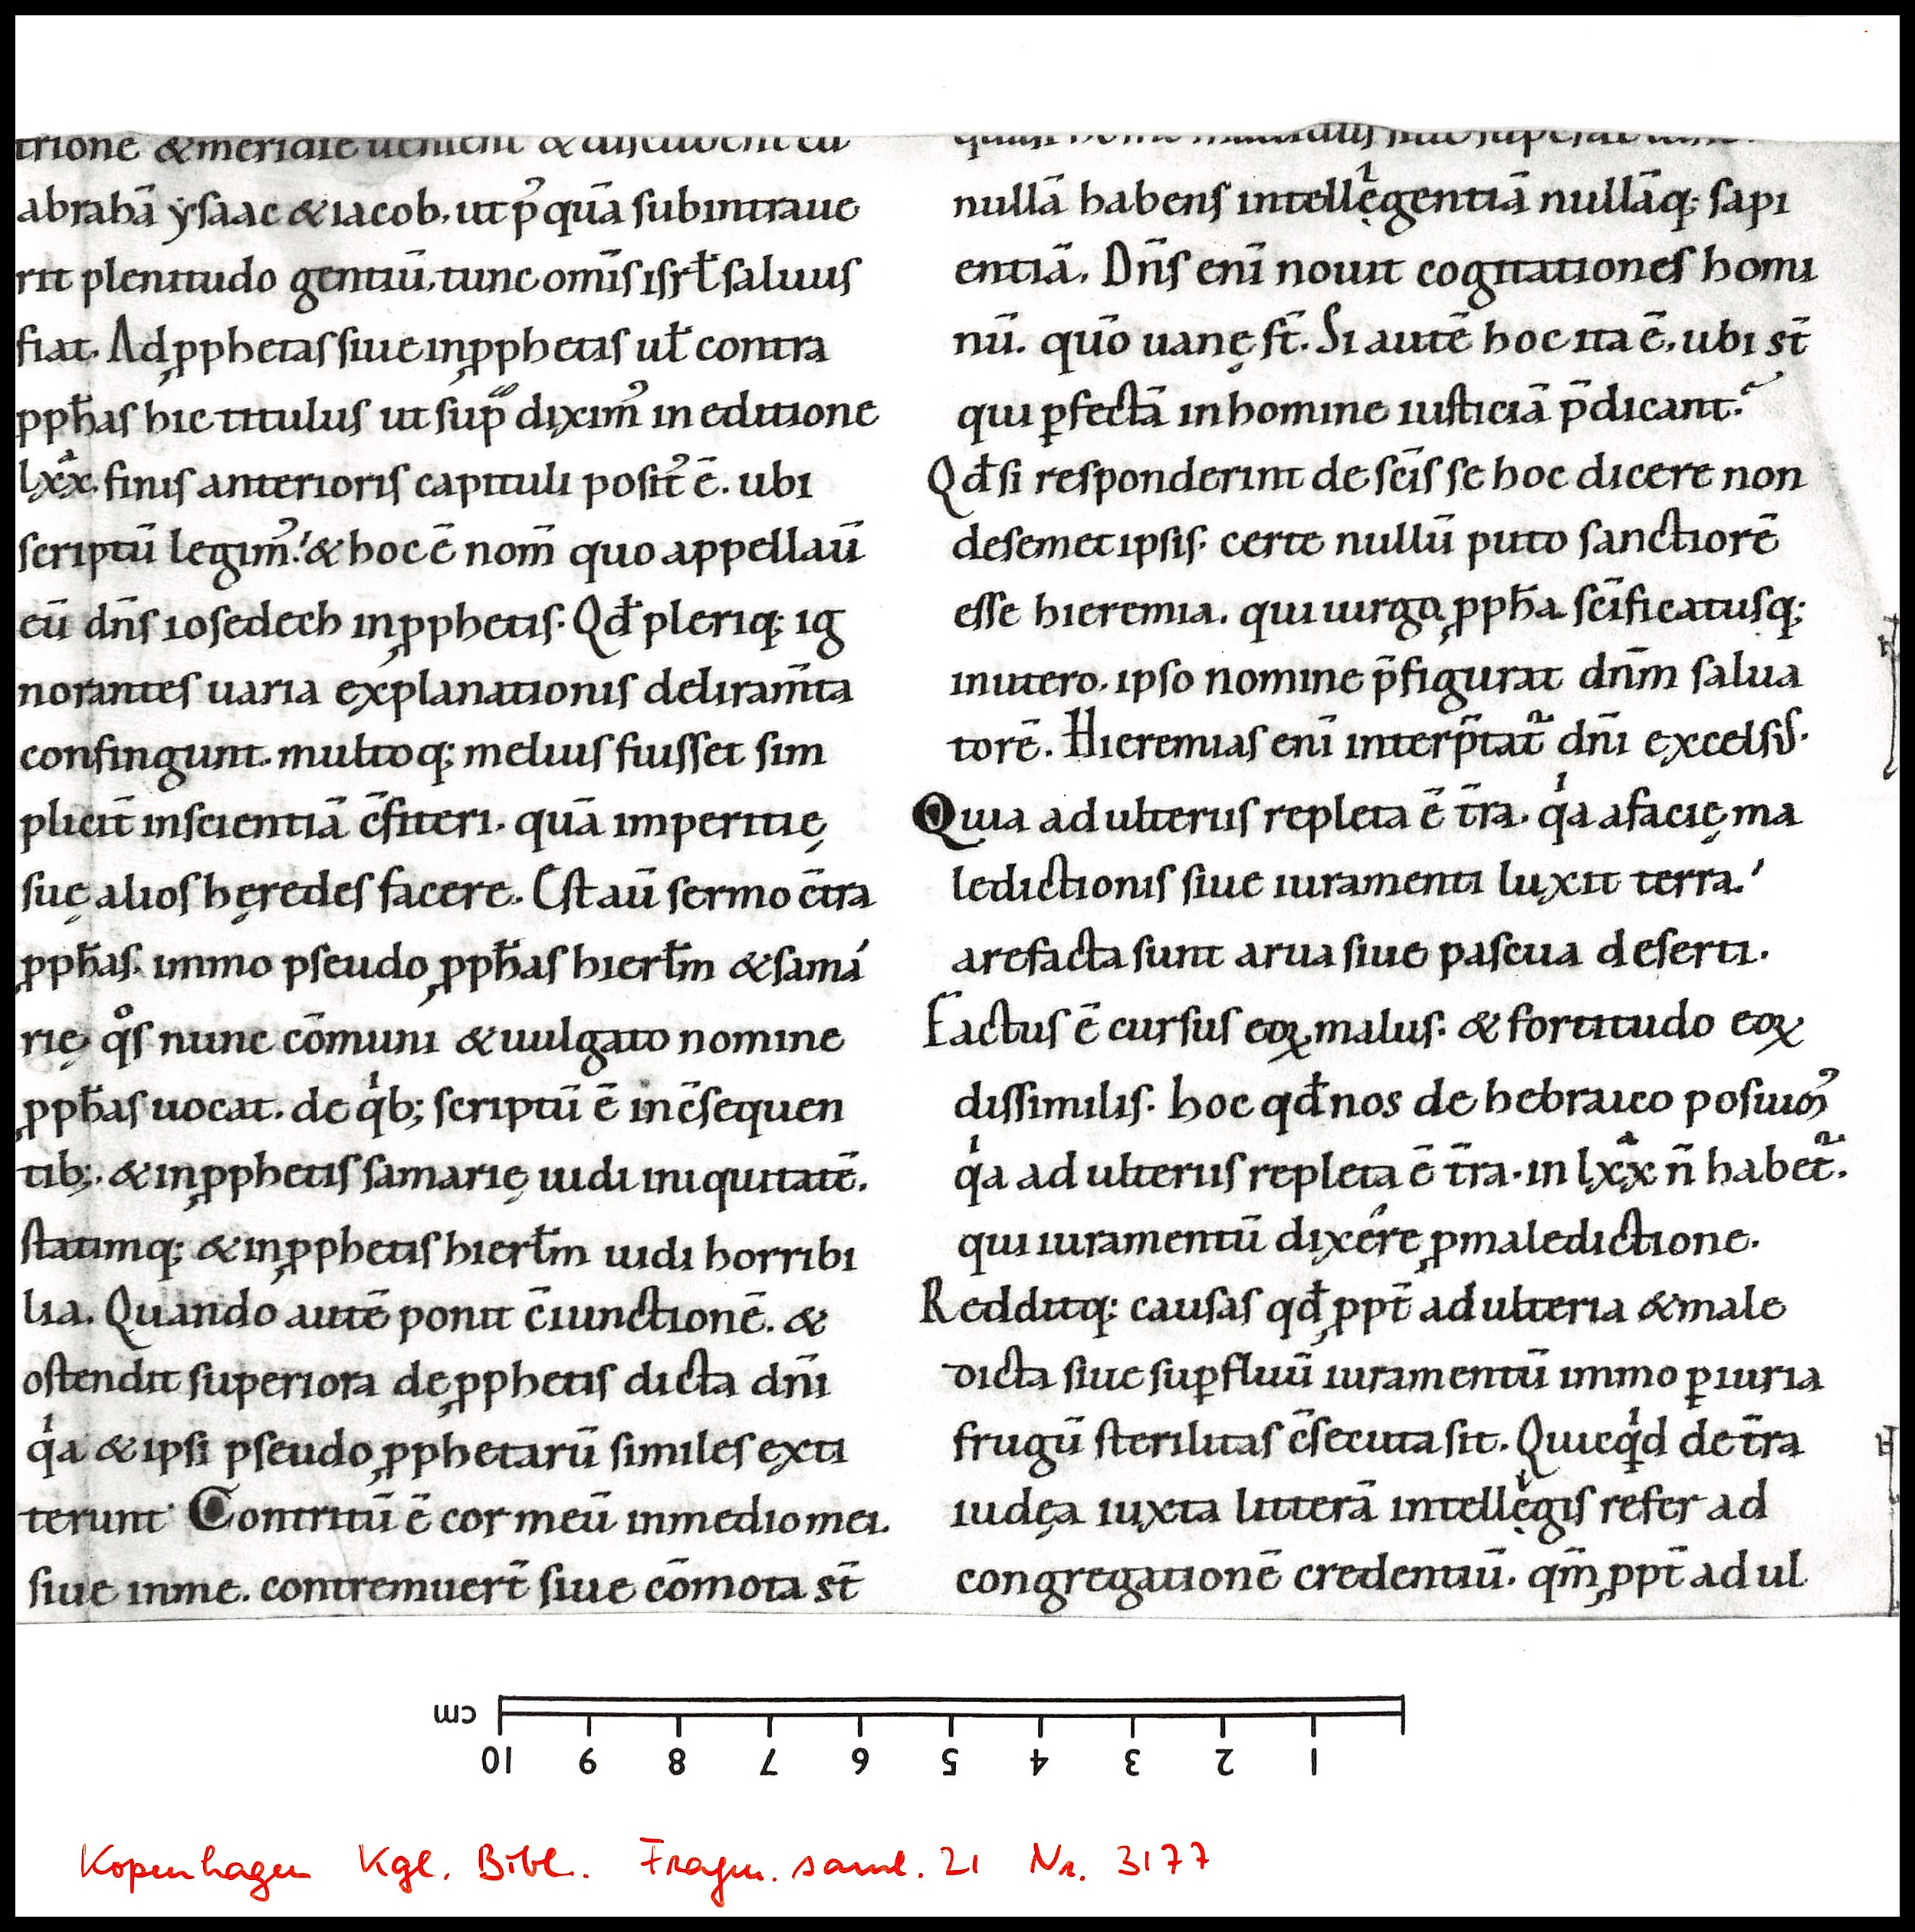 trione & meridie uenient & discubent cū
abrahā ẏsaac & iacob, ut p᾽ quā subintraue
rit plenitudo gentiū, tunc om̄is isrł saluus
fiat. Ad ꝓphetas siue in ꝓphetis uł contra
ꝓph̄as hic titulus ut sup̄ dixim᾽ in editione
lxx. finis anterioris capituli posit᾽ ē. ubi
scriptū legim᾽. & hoc ē nom̄ quo appellaū
eū dn̄s iosedech in ꝓphetis. Qđ pleriq; ig
norantes uaria explanationis deliram̄ta
confingunt. multoq; melius fuisset sim
plicit̄ inscientiā c̄fiteri. quā imperitię
suę alios hęredes facere. Est aū sermo c̄tra
ꝓph̄as. immo pseudo ꝓph̄as hierłm & sama
rię qͦs nunc cōmuni & uulgato nomine
ꝓph̄as uocat. de qⁱb; scriptū ē in c̄sequen
tib;. & in ꝓphetis samarię uidi iniquitatē.
statimq; & in ꝓphetis hierłm uidi horribi
lia. Quando autē ponit c̄iunctionē. &
ostendit superiora de ꝓphetis dicta dn̄i
qⁱa & ipsi pseudo ꝓphetarū similes exti
terunt. Contritū ē cor meū in medio mei.
siue in me. contremuert̄ siue cōmota st̄
nullā habens intellęgentiā nullāq; sapi
entiā. Dn̄s enī nouit cogitationes homi
nū. qūo uanę st̄. Si autē hoc ita ē, ubi st̄
qui ꝑfectā in homine iusticiā p̄dicant.
Qđ si responderint de sc̄is se hoc dicere non
de semet ipsis. certe nullū puto sanctiorē
esse hieremia. qui uirgo, ꝓph̄a sc̄ificatusq;
in utero. ipso nomine p̄figurat dn̄m salua
torē. Hieremias enī interp̄tat᷑ dn̄i excelsus.
Quia adulteriis repleta ē t̄ra. qⁱa a facię ma
ledictionis siue iuramenti luxit terra.
arefacta sunt arua siue pascua deserti.
Factus ē cursus eoꝝ malus. & fortitudo eoꝝ
dissimilis. hoc qđ nos de hebraico posuim᾽
qⁱa adulteriis repleta ē t̄ra. in lxx n̄ habet᷑.
qui iuramentū dixere ꝓ maledictione.
Redditq; causas qđ ꝓpt̄ adulteria & male
dicta siue suꝑfluū iuramentū immo ꝑiuria
frugū sterilitas c̄secuta sit. Quicqⁱd de t̄ra
iudęa iuxta litterā intellęgis refer ad
congregationē credentiū. qm̄ ꝓpt̄ adul
cm
10 9 8 7 6 5 4 3 2 1
Kopenhagen Kgl. Bibl. Fragm. saml. 21 Nr. 3177